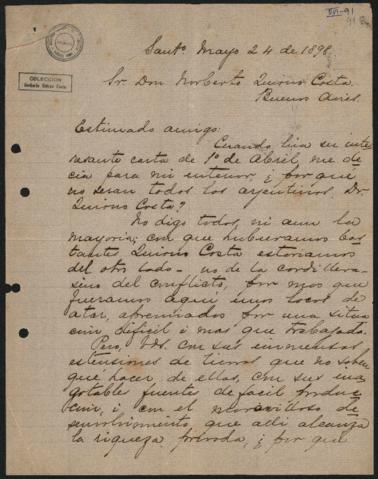 XVI-91
COLECCION
Norberto Quirno Costa
Santº Mayo 24 de 1898
Sr Don Norberto Quirno Costa.
Buenos Aires.
Estimado amigo:
Cuando leia su inte
resante carta de 1º de Abril, me de
cia para mi interior, ¿por qué
no seran todos los arjentinos Dr.
Quirno Costa?
No digo todos, ni aun la
mayoria; con que hubieramos bas
tantes Quirno Costa estariamos
del otro lado - no de la cordillera -
sino del conflicto, por mas que
fueramos aqui unos locos de
atar, apremiados por una situa
cion dificil i mas que trabajada.
Pero, Vds. con sus inmensas
estensiones de tierras que no saben
qué hacer de ellas, con sus ina
gotables fuentes de facil produc
cion, i con el maravilloso de
senvolvimiento que alli alcanza
la riqueza privada, ¿por qué